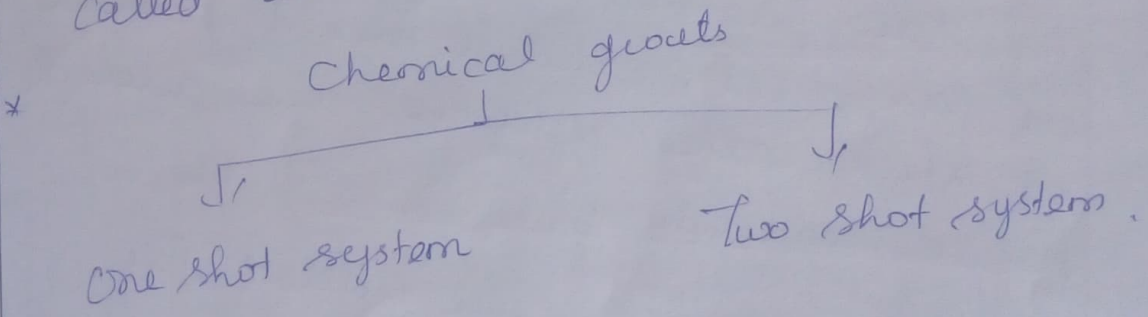 Called
* Chemical grouts
One shot system
Two shot system.